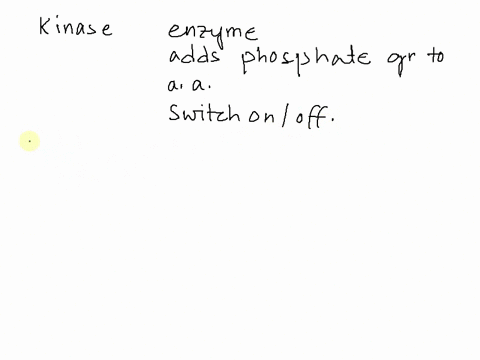 Kinase enzyme
adds phosphate gr to
a. a.
Switch on / off.